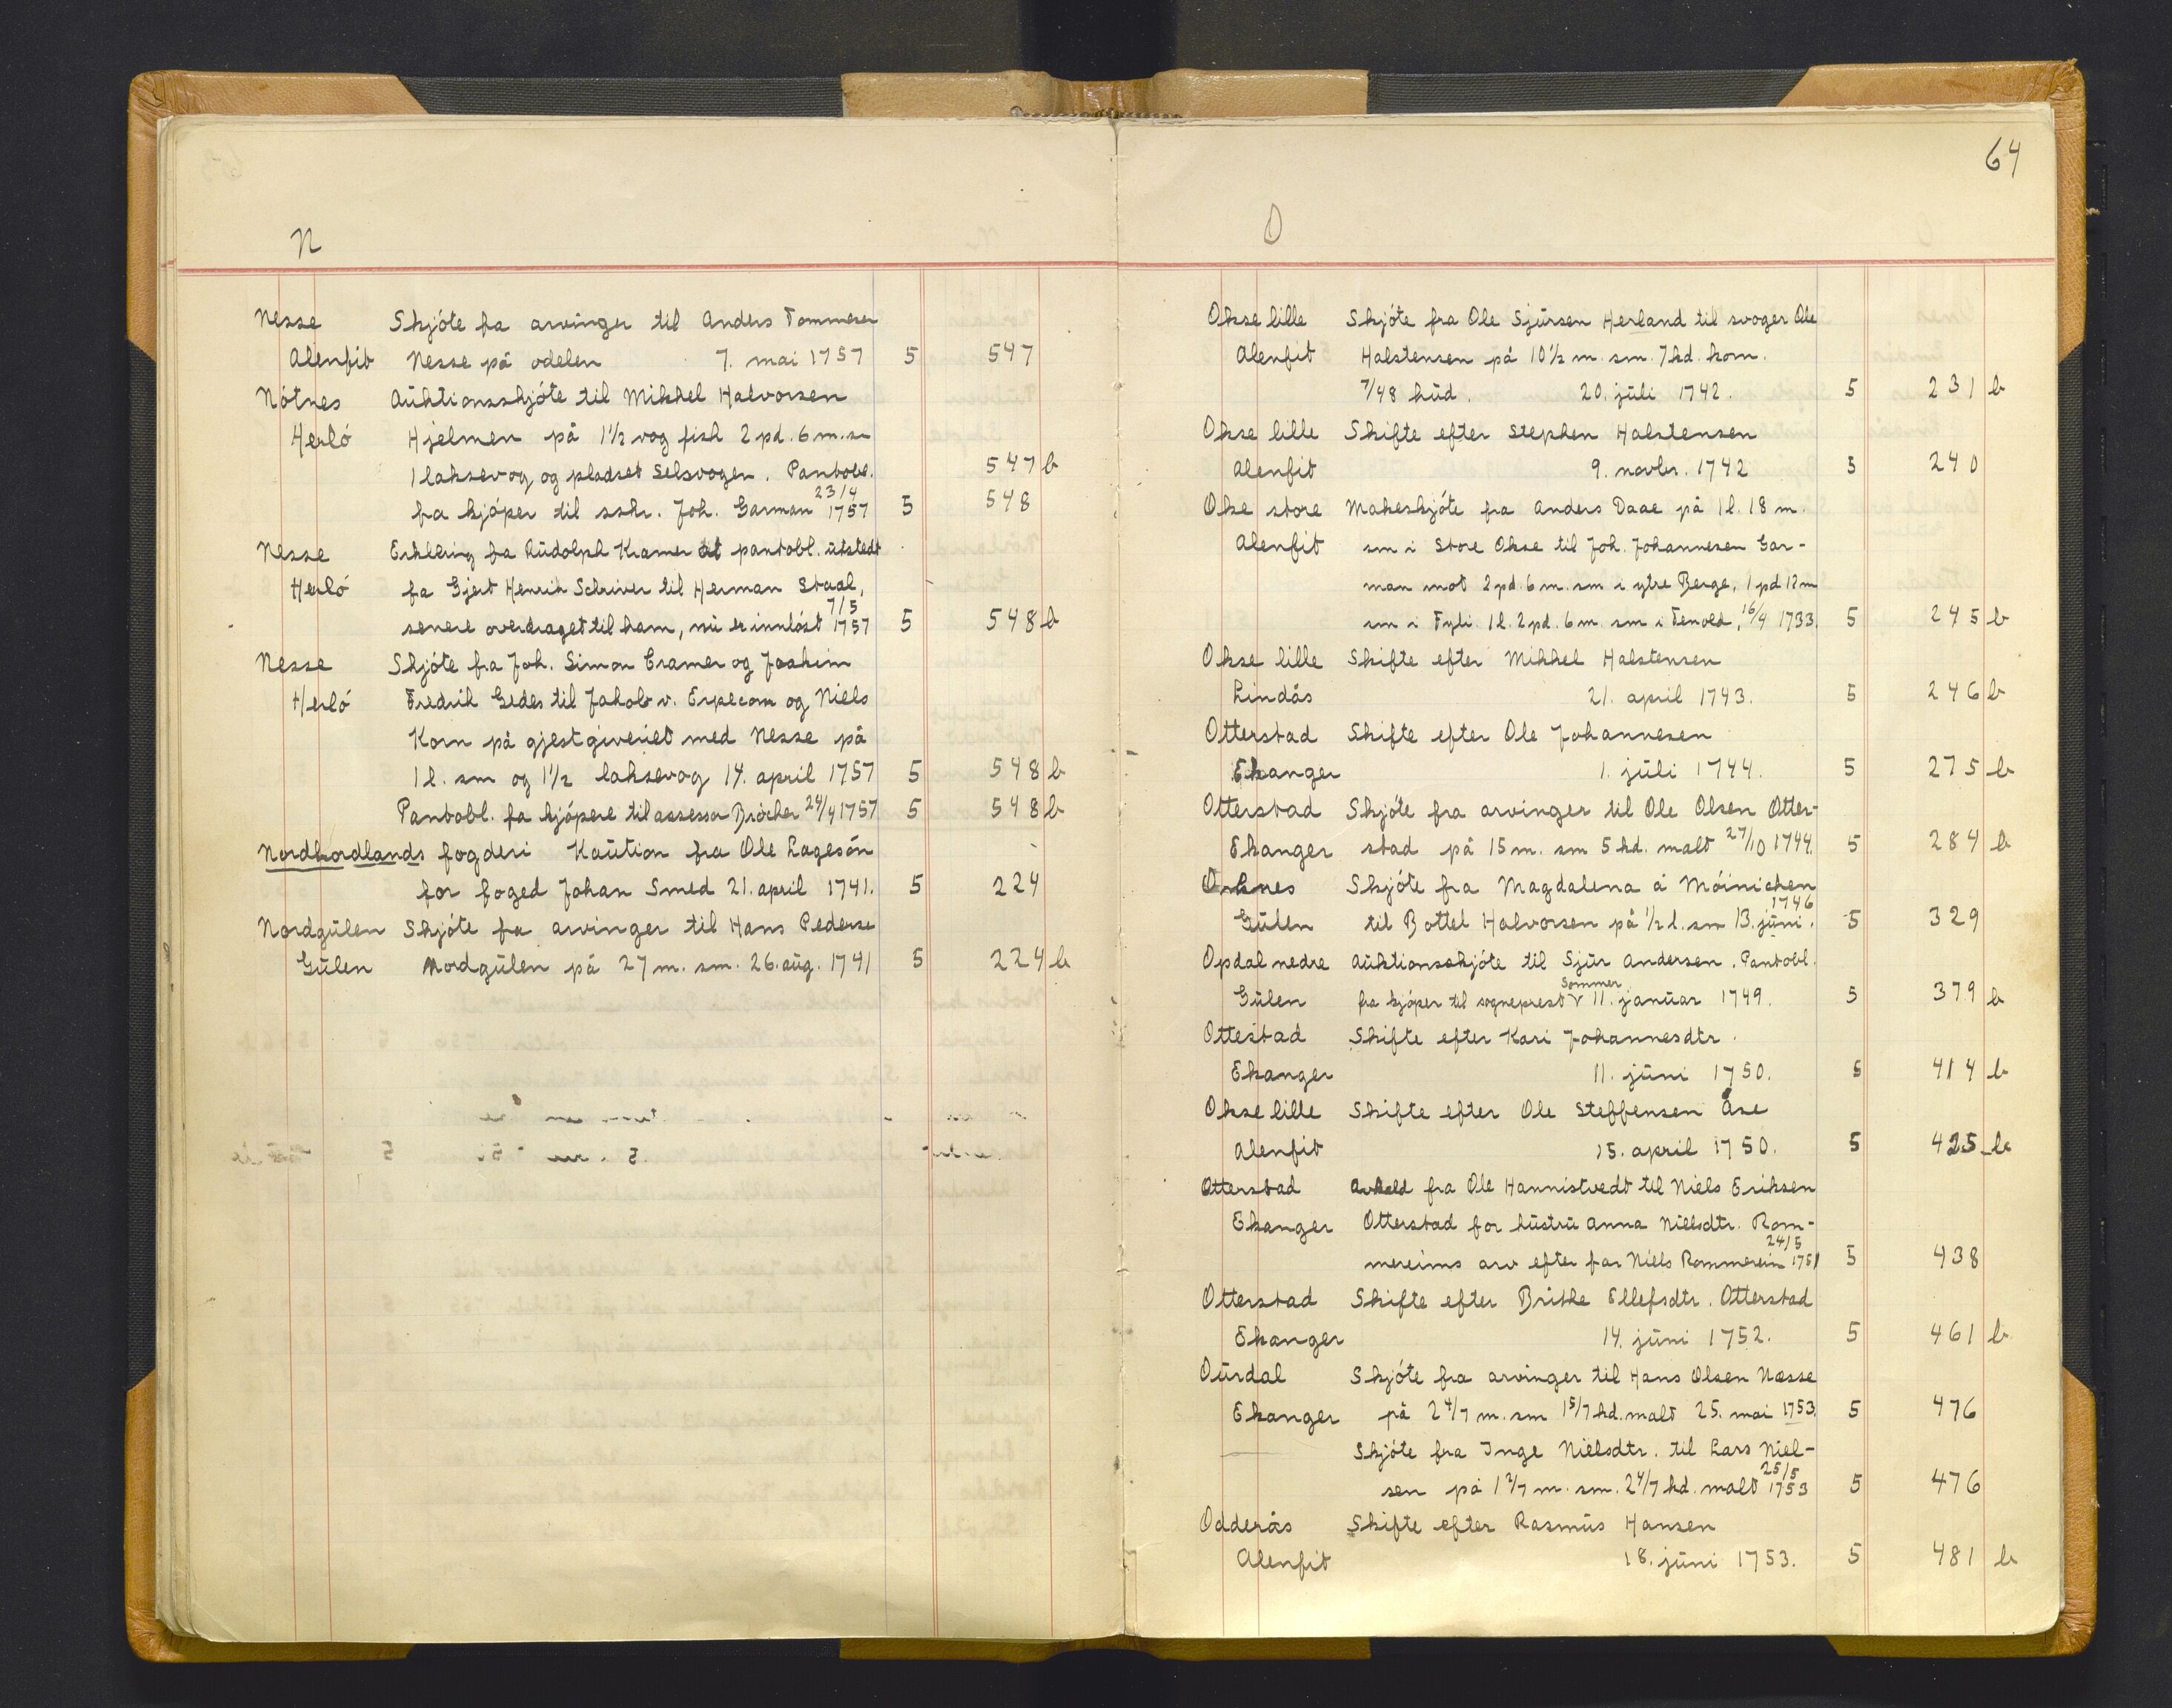 N
Nesse Skjóte fra arvinger til Anders Tommesen
Alenfit Nesse på odelen 7. mai 1757 5 547
Nótnes Auktionsskjóte til Mikkel Halvorsen
Herló Hjelmen på 1 1/2 vog fisk 2 pd. 6 m. sm
1 laksevog og pladset Selsvogen. Pantobl. 547 b
fra kjóper til sskr. Joh. Garman 23/4 1757 5 548
Nesse Erklering fra Rudolph Kramer at pantobl. utstedt
Herló fra Gjert Henrik Schriver til Herman Staal,
senere overdraget til ham, nu er innlóst 7/5 1757 5 548 b
Nesse Skjóte fra Joh. Simon Cramer og Joakim
Herló Fredrik Gedes til Jakob v. Erpecom og Niels
Korn på gjestgiveriet med Nesse på
1 l. sm og 1 1/2 laksevog 14. april 1757 5 548 b
Pantobl. fra kjópere til assessor Brócher 24/4 1757 5 548 b
Nordhordlands fogderi Kaution fra Ole Lagesón
for foged Johan Smed 21. april 1741. 5 224
Nordgulen Skjóte fra arvinger til Hans Pederse
Gulen Nordgulen på 27 m. sm. 26. aug. 1741 5 224 b
64
O
Okse lille Skjóte fra Ole Sjursen Herland til svoger Ole
Alenfit Halstensen på 10 1/2 m. sm. 7 kd. korn.
7/48 hud. 20. juli 1742. 5 231 b
Okse lille Skifte efter Stephen Halstensen
Alenfit 9. novbr. 1742 5 240
Okse store Makeskjóte fra Anders Daae på 1 l. 18 m.
Alenfit sm i Store Okse til Joh. Johannesen Gar-
man mot 2 pd. 6 m. sm i ytre Berge, 1 pd 12 m
sm i Fyli. 1 l. 2 pd. 6 m. sm i Tenold, 16/4 1733. 5 245 b
Okse lille Skifte efter Mikkel Halstensen
Lindås 21. april 1743. 5 246 b
Otterstad Skifte efter Ole Johannesen
Ekanger 1. juli 1744. 5 275 b
Otterstad Skjóte fra arvinger til Ole Olsen Otter-
Ekanger stad på 15 m. sm 5 kd. malt 27/10 1744. 5 284 b
Orknes Skjóte fra Magdalena á Móinichen
Gulen til Bottel Halvorsen på 1/2 l. sm 13. juni. 1746 5 329
Opdal nedre Auktionsskjóte til Sjur Andersen. Pantobl.
Gulen fra kjóper til sogneprest Sommer 11. januar 1749. 5 379 b
Ottestad Skifte efter Kari Johannesdtr.
Ekanger 11. juni 1750. 5 414 b
Okse lille Skifte efter Ole Steffensen Åse
Alenfit 15. april 1750. 5 425 b
Otterstad Avkald fra Ole Hannistvedt til Niels Eriksen
Ekanger Otterstad for hustru Anna Nielsdtr. Rom-
mereims arv efter far Niels Rommereim 24/5 1751 5 438
Otterstad Skifte efter Brithe Ellefsdtr. Otterstad
Ekanger 14. juni 1752. 5 461 b
Ourdal Skjóte fra arvinger til Hans Olsen Næsse
Ekanger på 2 4/7 m. sm 1 5/7 kd. malt 25. mai 1753. 5 476
Skjóte fra Inge Nielsdtr. til Lars Niel-
sen på 1 2/7 m. sm. 2 4/7 kd. malt 25/5 1753 5 476
Odderås Skifte efter Rasmus Hansen
Alenfit 18. juni 1753. 5 481 b